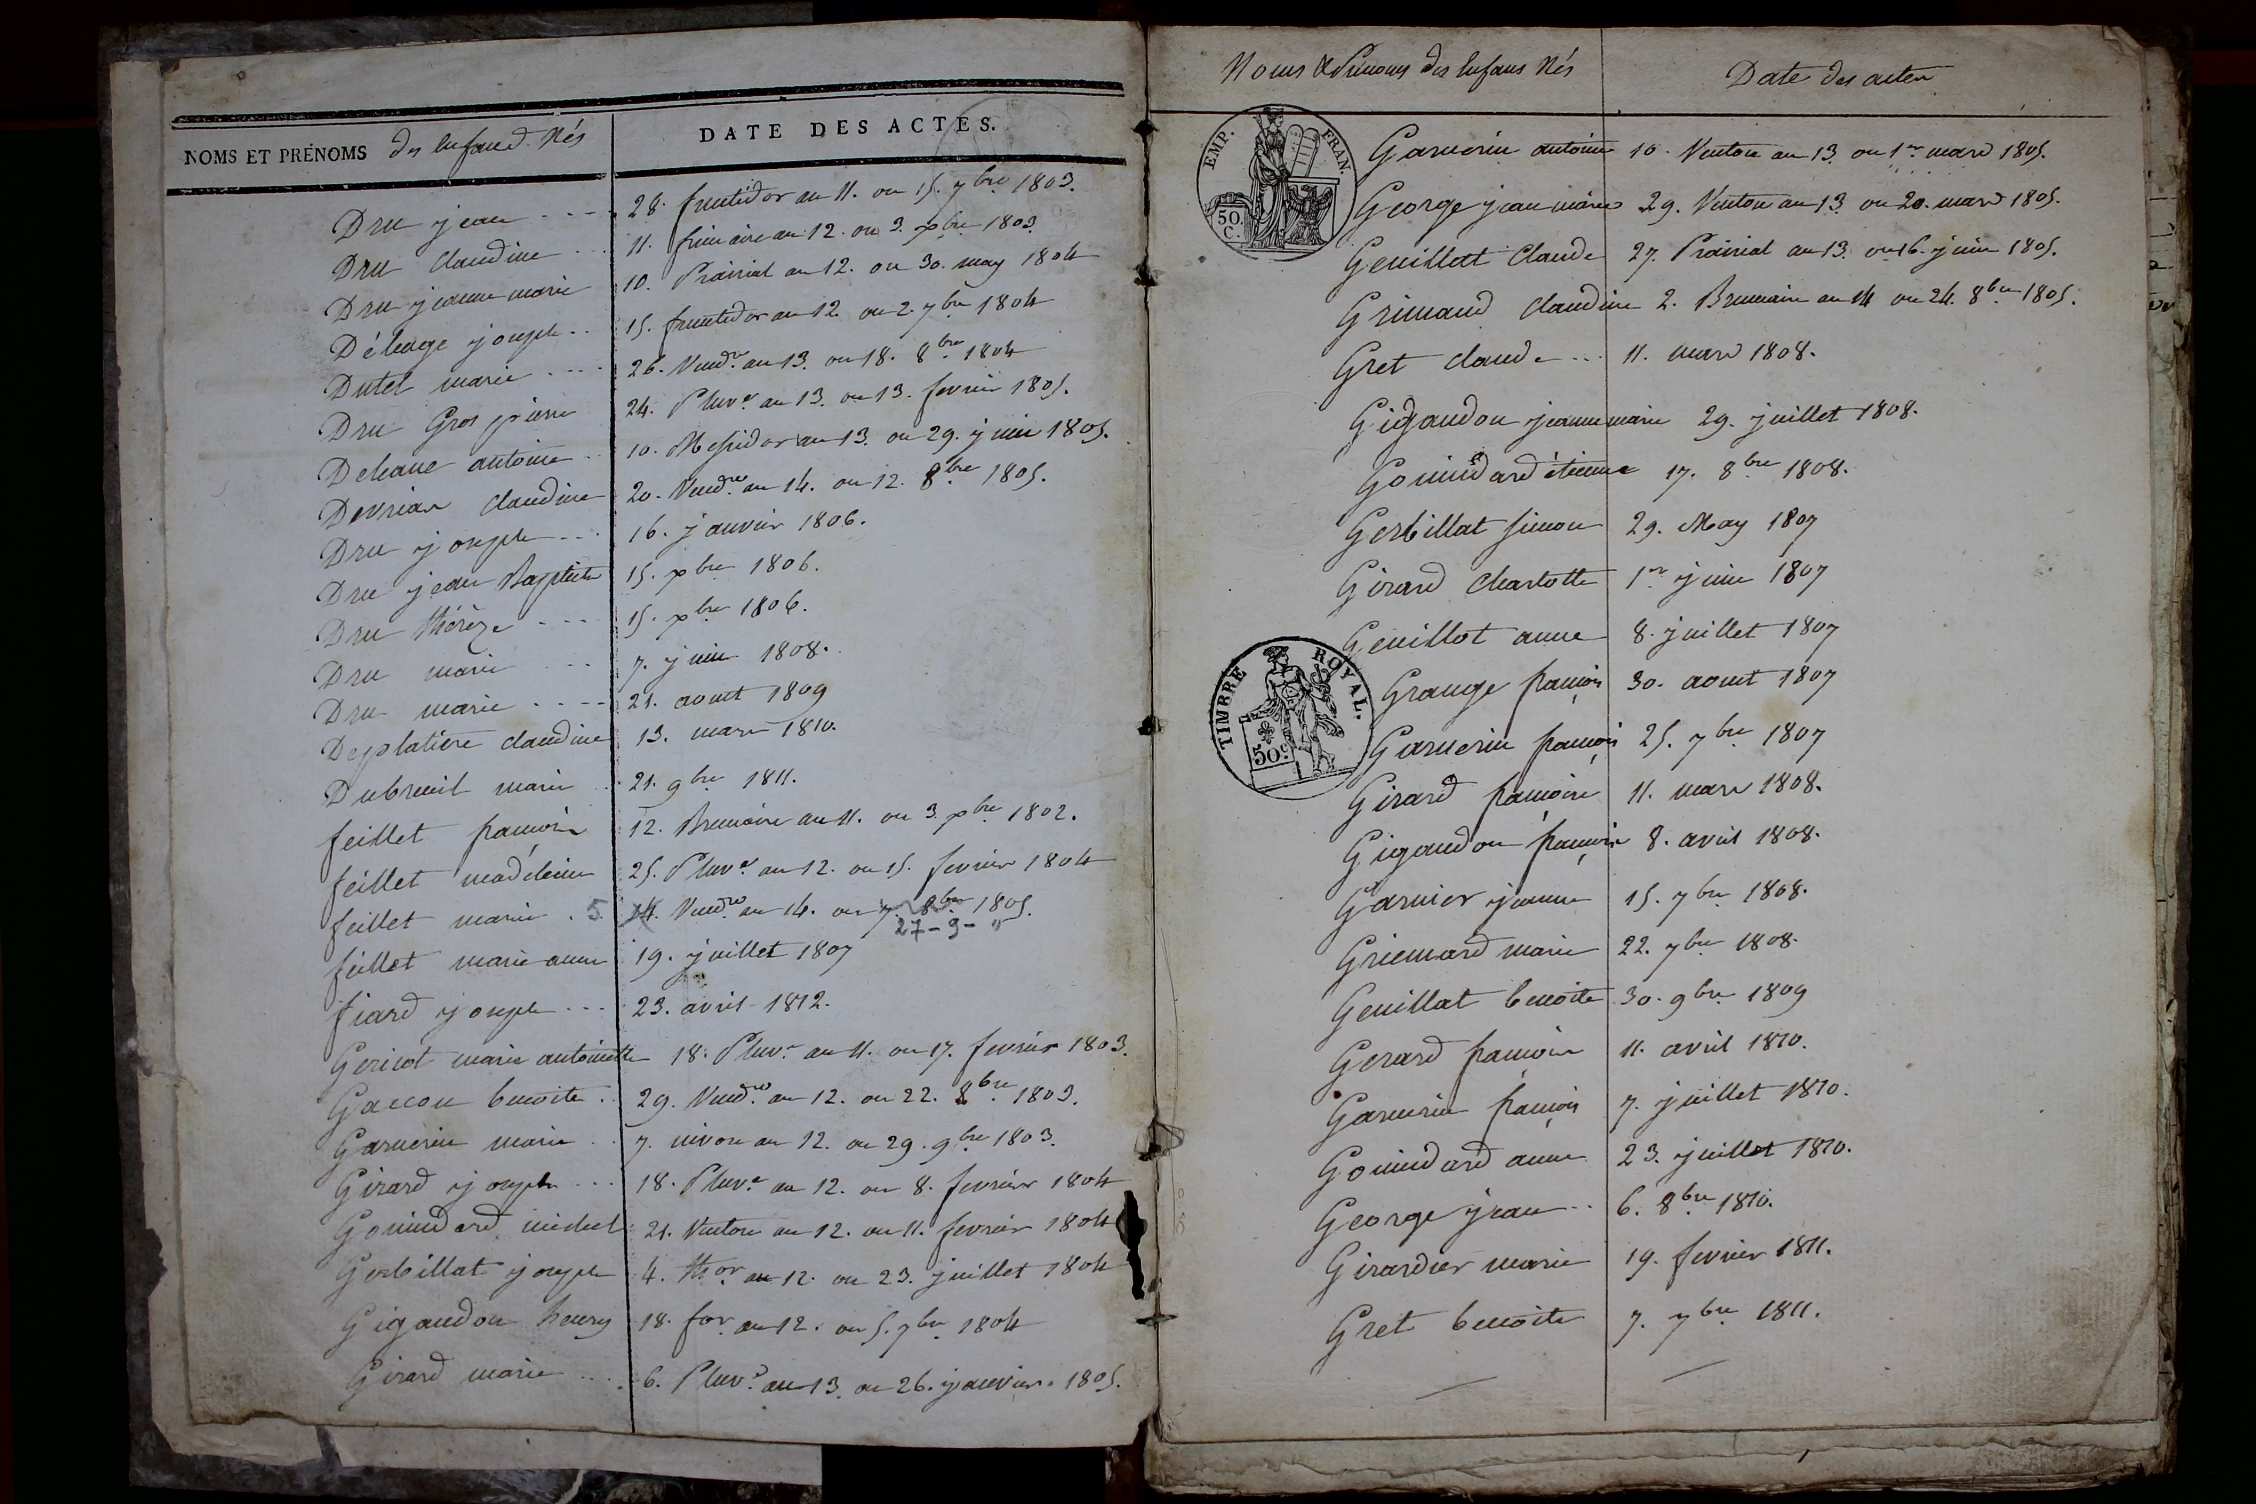 NOMS ET PRÉNOMS des Enfans Nés DATE DES ACTES.
Dru jean - - - 28. fructidor an 11. ou 15. 7bre 1803.
Dru claudine . . . 11. frimaire an 12. ou 3. xbre 1803.
Dru jeanne marie 10. Prairial an 12. ou 30. may 1804
joseph . . 15. fructidor an 12. ou 2. 7bre 1804
Dutel marie . . . . 26. Vendre an 13. ou 18. 8bre 1804
Dru Gros pierre 24. Pluve an 13. ou 13. fevrier 1805.
antoine . . 10. Messidor an 13. ou 29. juin 1805.
claudine 20. Vendre an 14. ou 12. 8bre 1805.
Dru joseph . . . 16. janvier 1806.
Dru jean Baptiste 15. xbre 1806.
Dru thérèze - - - 15. xbre 1806.
Dru marie - - - 7. juin 1808.
Dru marie . . - - 21. aout 1809
Deplatière claudine 13. mars 1810.
Dubreuil marie . 21. 9bre 1811.
feillet françois 12. Brumaire an 11. ou 3. xbre 1802.
feillet madeleine 25. Pluve an 12. ou 15. fevrier 1804
feillet marie . 5 14. Vendre an 14. ou 7. 8bre 1805.
27 - 9 - "
feillet marie anne 19. juillet 1807
fiard joseph . . . 23. avril 1812.
Gericot marie antoinette 18. Pluve an 11. ou 17. fevrier 1803.
Gaccon benoite . . 29. Vendre an 12. ou 22. 8bre 1803.
Garnerin marie . . 7. nivose an 12. ou 29. 9bre 1803.
Girard joseph . . . 18. Pluve an 12. ou 8. fevrier 1804
Gouindard michel 21. Ventose an 12. ou 11. fevrier 1804
Gerbillat joseph 4. thor an 12. ou 23. juillet 1804
Gigandon henry 18. for an 12. ou 5. 7bre 1804
Girard marie . . . . 6. Pluve an 13. ou 26. janvier. 1805.
Noms & Prénoms des Enfans Nés Date des actes
EMP. FRAN.
50. C.
Garnerin antoine 10. Ventose an 13. ou 1er mars 1805.
George jean marie 29. Ventose an 13. ou 20. mars 1805.
Genillat Claude 27. Prairial an 13. ou 16. juin 1805.
Grimaud claudine 2. Brumaire an 14 ou 24. 8bre 1805.
Gret claude . . . 11. mars 1808.
Gigandon jeanne marie 29. juillet 1808.
Gouindard étienne 17. 8bre 1808.
Gerbillat simon 29. May 1807
Girard charlotte 1er juin 1807
Genillot anne 8. juillet 1807
TIMBRE ROYAL.
50c
Grange françois 30. aout 1807
Garnerin françois 25. 7bre 1807
Girard françoise 11. mars 1808.
Gigandon françois 8. avril 1808.
Garnier jeanne 15. 7bre 1808.
Griemard marie 22. 7bre 1808.
Genillat benoite 30. 9bre 1809
Gerard françoise 11. avril 1810.
Garnerin françois 7. juillet 1810.
Gouindard anne 23. juillet 1810.
George jean . . 6. 8bre 1810.
Girardier marie 19. fevrier 1811.
Gret benoite 7. 7bre 1811.